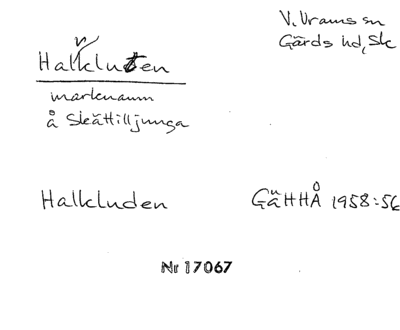 V. Vrams sn
Gärds hd, Sk
Halkluten
marknamn
å Skättilljunga
Halkluden
GäHHÅ 1958:56
Nr 17067